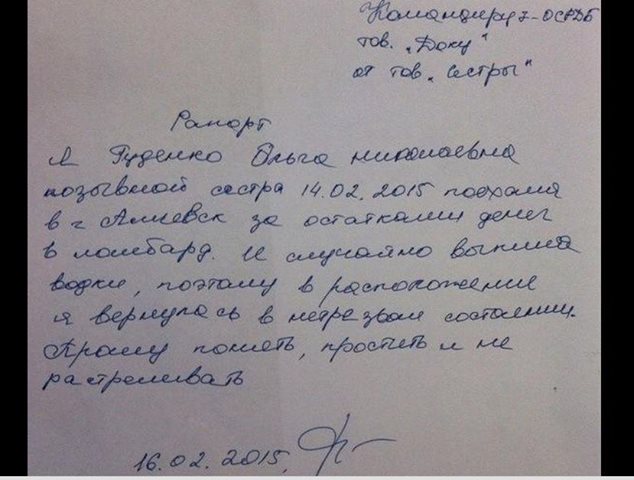 Командиру 7-ОСРДБ
тов. „Доку"
от тов. „Сестры"
Рапорт
Я Руденко Ольга Николаевна
позывной сестра 14.02.2015 поехала
в г Алчевск за остатками денег
в ломбард. И случайно выпила
водки, поэтому в расположение
я вернулась в нетрезвом состоянии.
Прошу понять, простить и не
растреливать
16.02.2015,